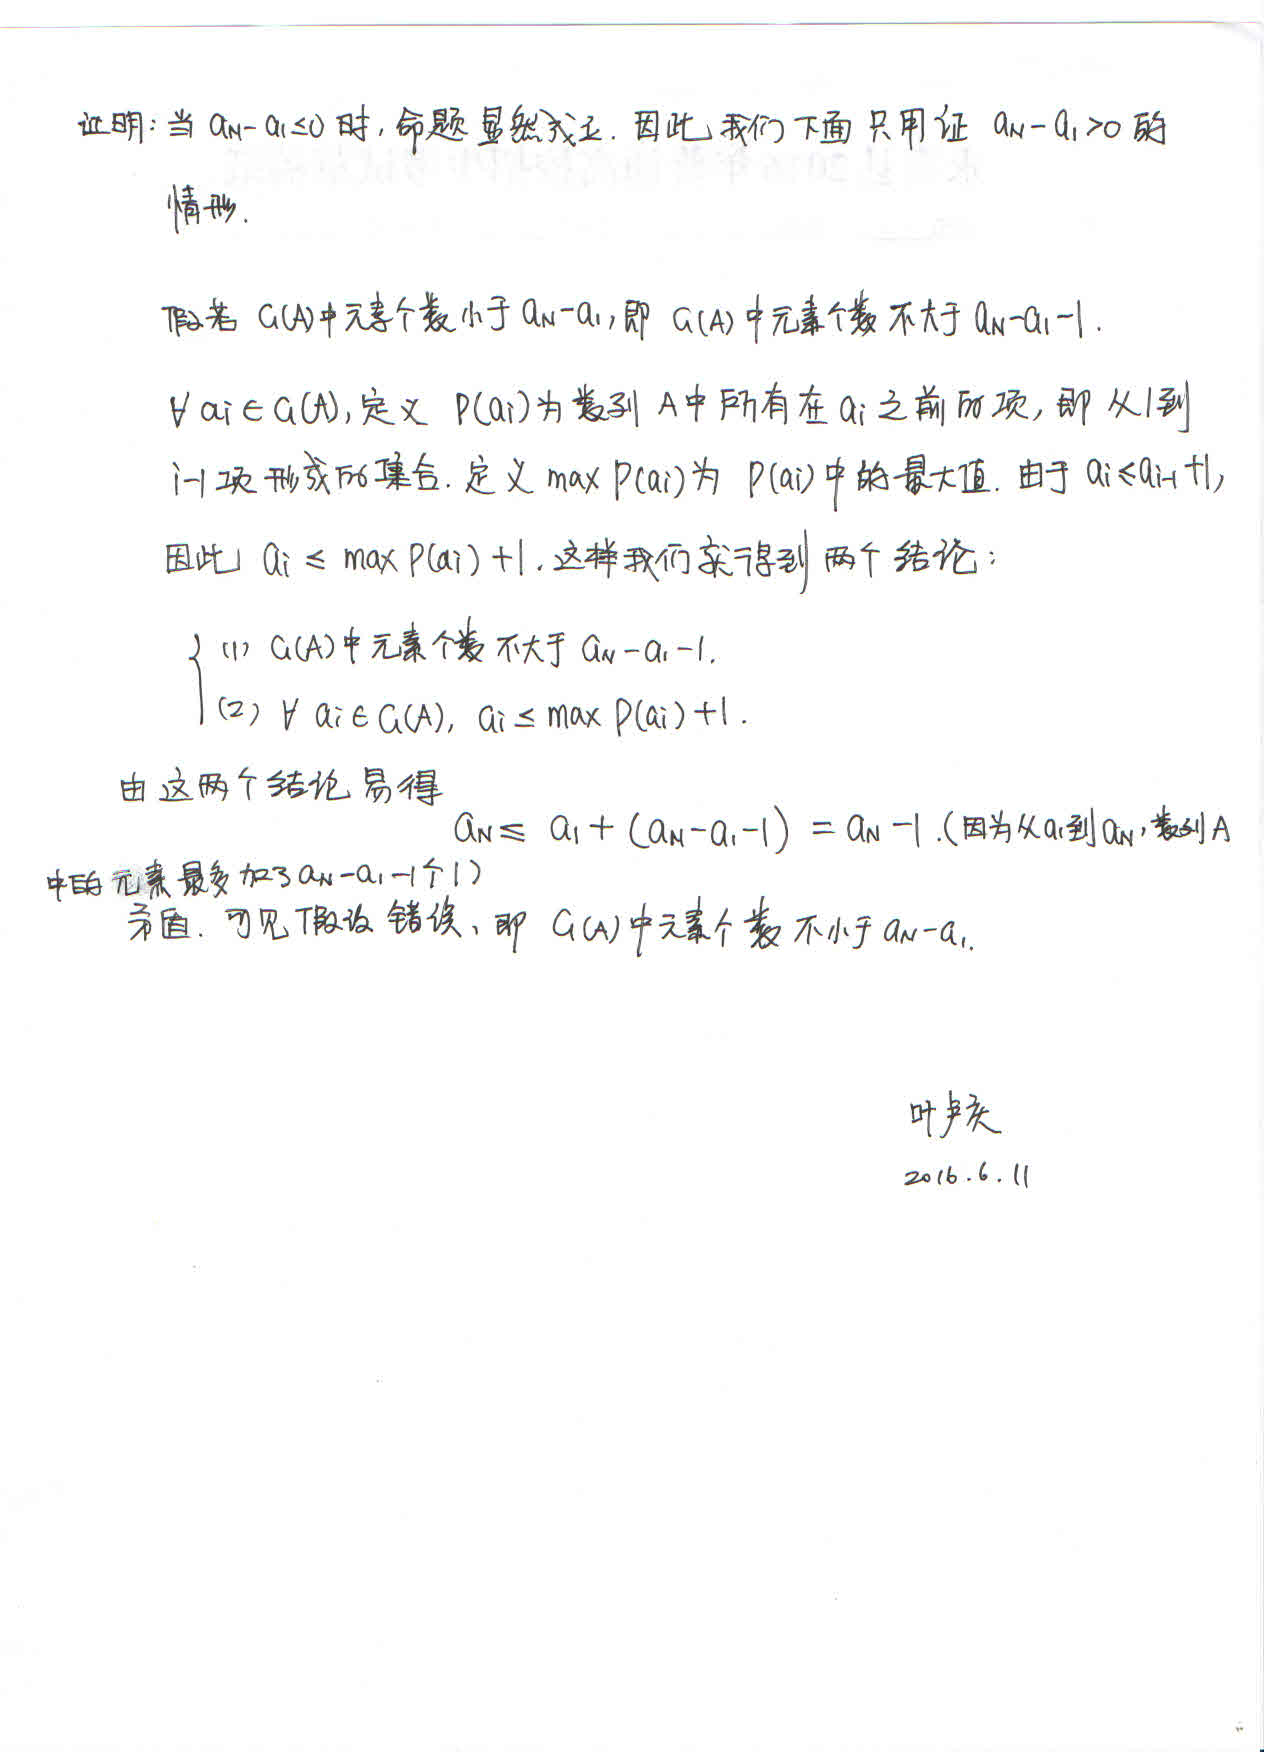 证明：当 aN-a1≤0 时，命题显然成立. 因此我们下面只用证 aN-a1>0 的
情形.
假若 G(A)中元素个数小于 aN-a1，即 G(A)中元素个数不大于 aN-a1-1.
∀ai∈G(A)，定义 P(ai)为数列 A中所有在 ai 之前的项，即从1到
i-1项形成的集合. 定义 max P(ai)为 P(ai)中的最大值. 由于 ai≤ai-1+1，
因此 ai ≤ max P(ai)+1. 这样我们就得到两个结论：
(1) G(A)中元素个数不大于 aN-a1-1.
(2) ∀ ai∈G(A)，ai≤max P(ai)+1.
由这两个结论易得
aN≤ a1+(aN-a1-1) = aN-1.（因为从a1到aN，数列A
中的元素最多加了aN-a1-1个1）
矛盾. 可见假设错误，即 G(A)中元素个数不小于 aN-a1.
2016.6.11